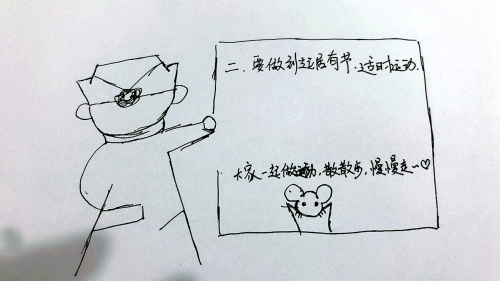 二.要做到起居有节.适时运动.
大家一起做运动,散散步,慢慢走~♡